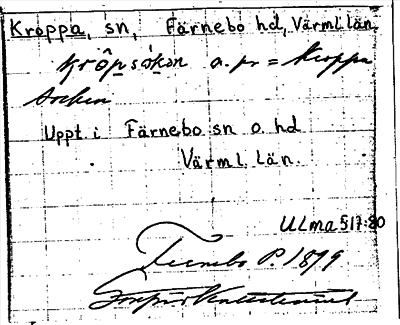 Kroppa, sn, Färnebo hd, Värml. län.
Krôpso̊kǝn o. pr = Kroppa
Socken
Uppt. i Färnebo sn o. hd
Värml. län.
ULma 517:80
Fernebo P. 1879